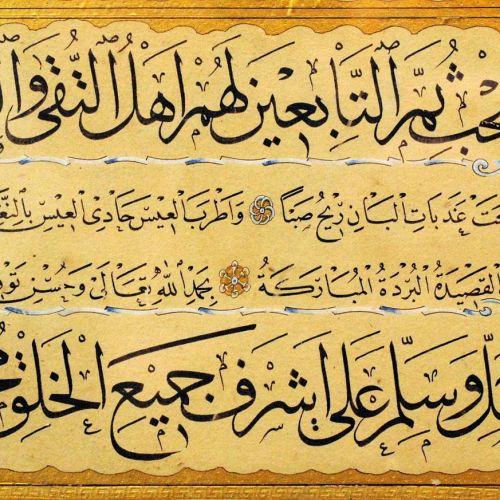 ثُمَّ التَّابِعِينَ لَهُمْ اَهْلُ التُّقٰى
عَذَبَاتِ الْبَانِ رِيحُ صَبًا وَاَطْرَبَ الْعِيسَ حَادِى الْعِيسِ
الْقَصِيدَةُ الْبُرْدَةُ الْمُبَارَكَةُ بِحَمْدِ اللّٰهِ تَعَالٰى وَحُسْنِ
وَسَلِّمْ عَلٰى اَشْرَفِ جَمِيعِ الْخَلْقِ